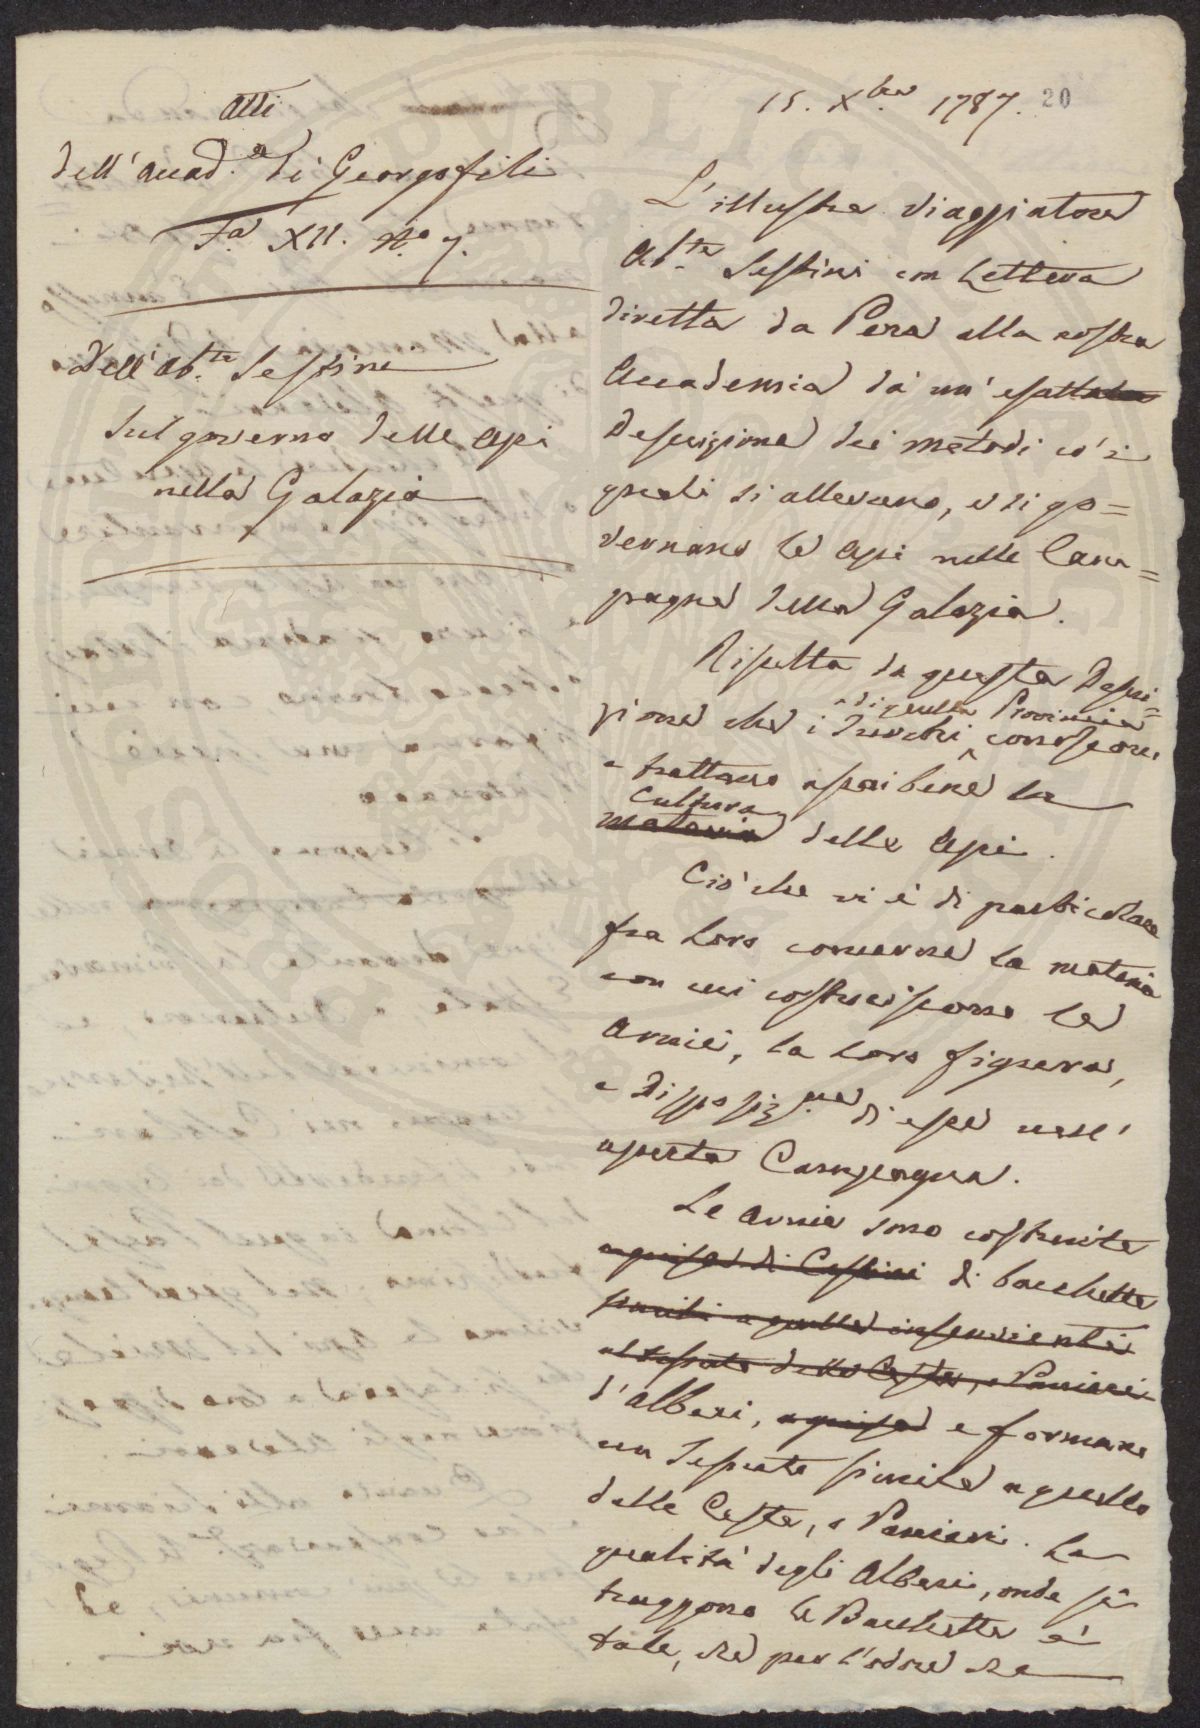 Atti
dell'Accad.a di Georgofili
T.a XII. N.o 7.
Dell'Ab.te Sestini
sul governo delle Api
nella Galazia
15. Xbre 1787. 20
L'illustre viaggiatore
Ab.te Sestini con Lettera
diretta da Pera alla nostra
Accademia dà un'esatta
Descrizione dei metodi co' i
quali si allevano, e si go=
vernano le Api nelle Cam=
pagne della Galazia.
Risulta da questa Descri=
zione che i Turchi di quella Provincia conoscono,
e trattano assai bene la
Cultura
materia delle Api.
Ciò che vi è di particolare
fra loro concerne la materia
con cui costruiscono le
Arnie, la loro figura,
e disposiz.ne di esse nell'
aperta Campagna.
Le arnie sono costruite
a guisa di Cestini di bacchette
simili a quelle inservienti
al tessuto delle Ceste, e Panieri
d'Alberi, a guisa e formano
un Tessuto simile a quello
delle Ceste, e Panieri. La
qualità degli Alberi, onde si
traggono le Bacchette è
tale, che per l'odore che